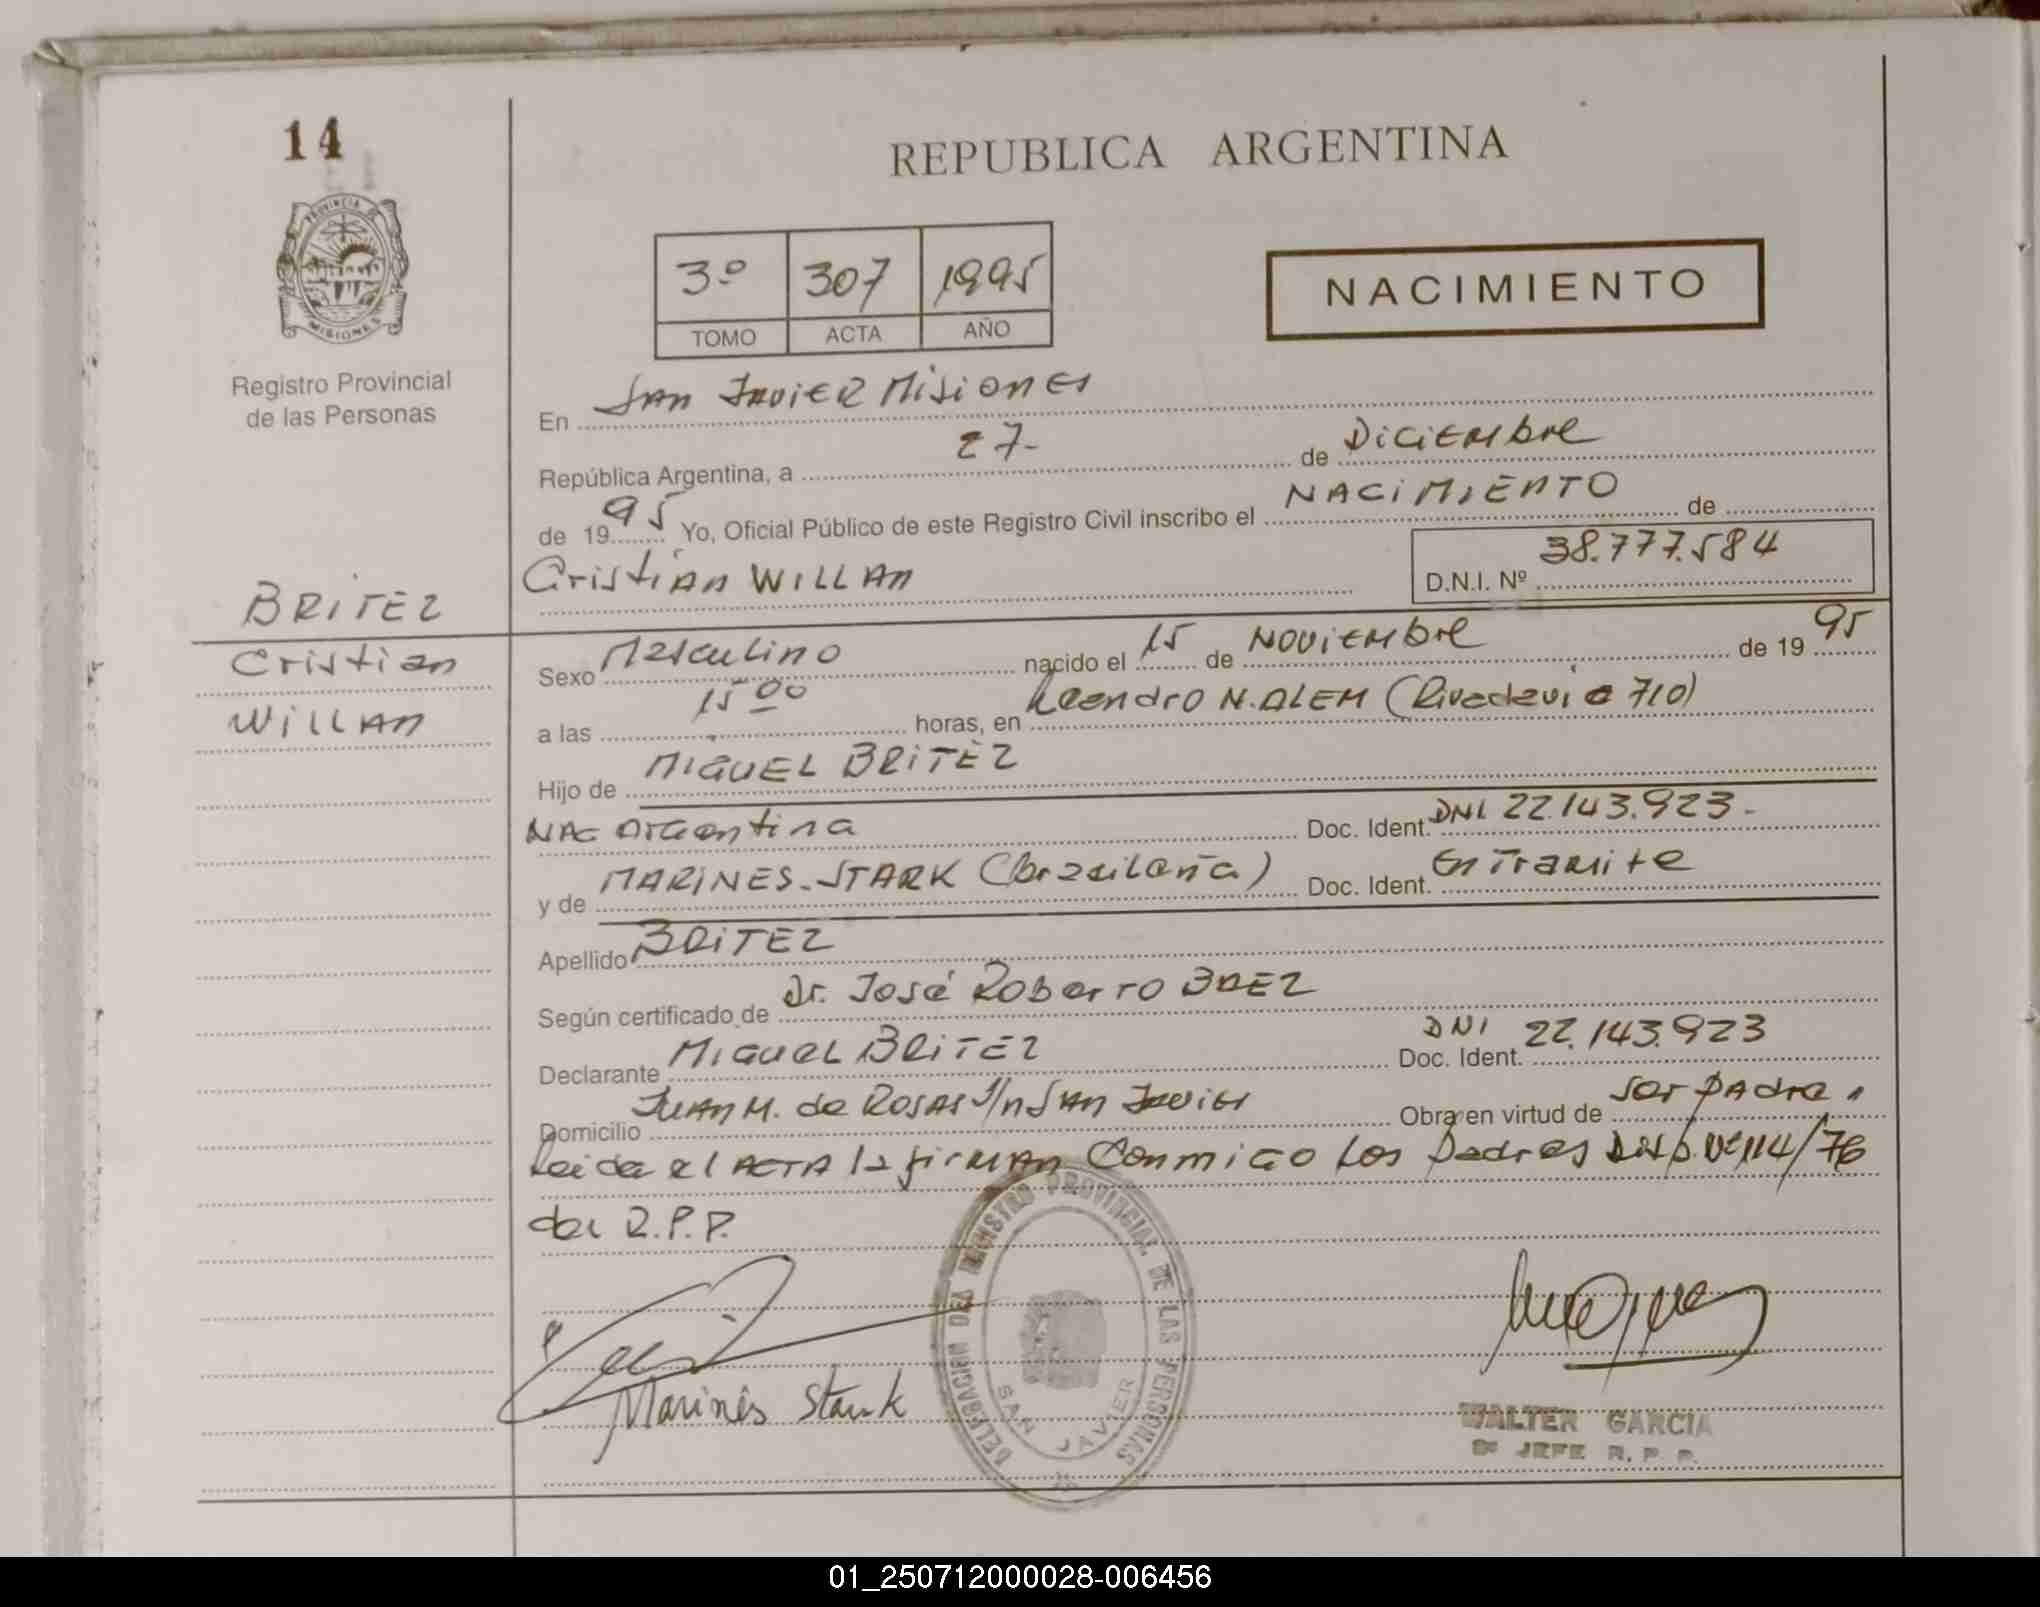 14
REPUBLICA ARGENTINA
PROVINCIA DE
MISIONES
Registro Provincial
de las Personas
3º 307 1995
TOMO ACTA AÑO
NACIMIENTO
En San Javier Misiones
República Argentina, a 27- de Diciembre
de 1995 Yo, Oficial Público de este Registro Civil inscribo el NACIMIENTO de
Cristian WILLAN
D.N.I. Nº 38.777.584
BRITEZ
Cristian
WILLAN
Sexo Masculino nacido el 15 de NOVIEMbre de 1995
a las 15 00 horas, en Leandro N. ALEM (Rivadavia 710)
Hijo de MIGUEL BRITEZ
NAC Argentina Doc. Ident. DNI 22.143.923-
y de MARINES. STARK (brasileña) Doc. Ident. En Tramite
Apellido BRITEZ
Según certificado de Dr. José Roberto BAEZ
Declarante MIGUEL BRITEZ Doc. Ident. DNI 22.143.923
Domicilio JUAN M. de ROSAS S/n SAN Javier Obra en virtud de ser padre,
Leida el ACTA la firman Conmigo Los Padres Disp. Nº 114/76
del R.P.P.
Marinês Stark
DELEGACION DEL REGISTRO PROVINCIAL DE LAS PERSONAS
SAN JAVIER
WALTER GARCIA
JEFE R. P. P.
01_250712000028-006456